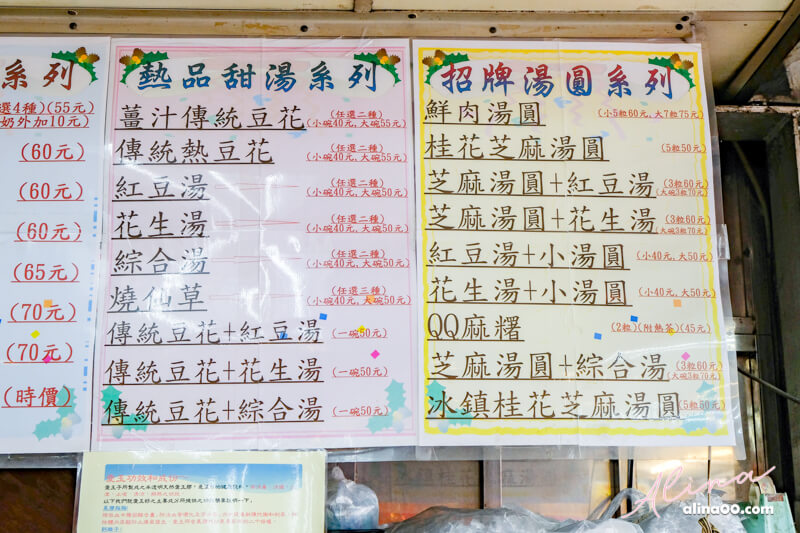 系列
選4種)(55元)
奶外加10元)
(60元)
(60元)
(60元)
(65元)
(70元)
(70元)
(時價)
熱品甜湯系列
薑汁傳統豆花 (任選二種)
(小碗40元,大碗55元)
傳統熱豆花 (任選二種)
(小碗40元,大碗55元)
紅豆湯 (任選二種)
(小碗40元,大碗50元)
花生湯 (任選二種)
(小碗40元,大碗50元)
綜合湯 (任選二種)
(小碗40元,大碗50元)
燒仙草 (任選三種)
(小碗40元,大碗50元)
傳統豆花+紅豆湯 (一碗50元)
傳統豆花+花生湯 (一碗50元)
傳統豆花+綜合湯 (一碗50元)
招牌湯圓系列
鮮肉湯圓 (小5粒60元,大7粒75元)
桂花芝麻湯圓 (5粒50元)
芝麻湯圓+紅豆湯 (3粒60元)
(大碗3粒70元)
芝麻湯圓+花生湯 (3粒60元)
(大碗3粒70元)
紅豆湯+小湯圓 (小40元,大50元)
花生湯+小湯圓 (小40元,大50元)
QQ麻糬 (2粒)(附熱茶)(45元)
芝麻湯圓+綜合湯 (3粒60元)
(大碗3粒70元)
冰鎮桂花芝麻湯圓 (5粒50元)
Alina
alina00.com